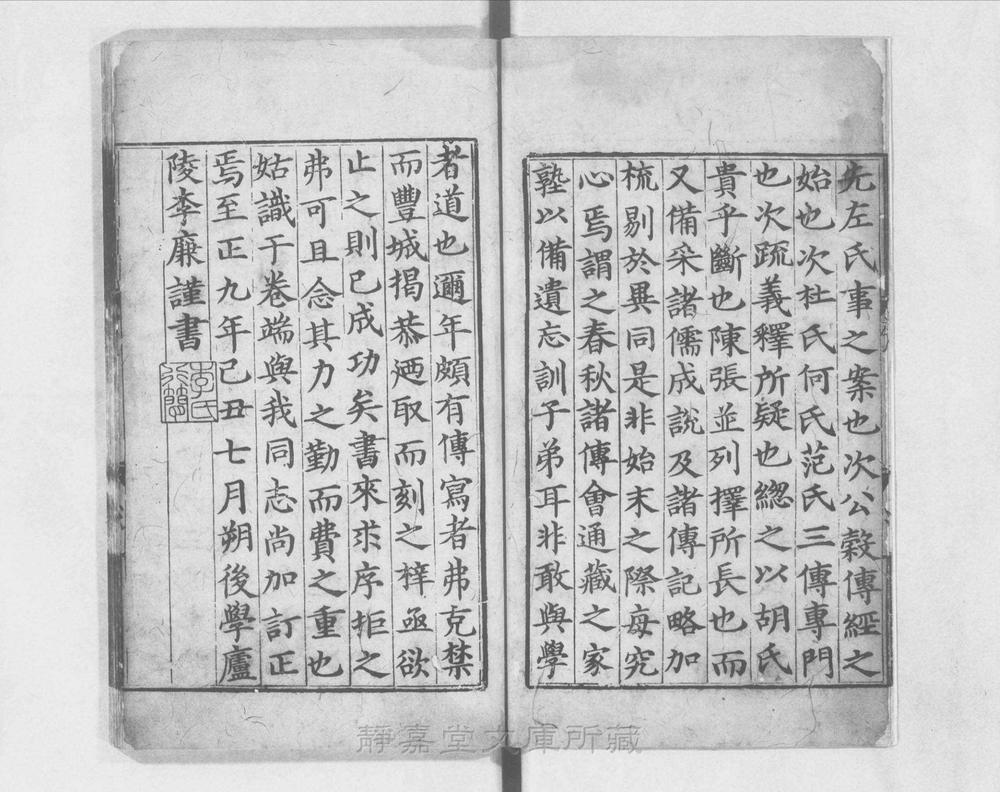 先左氏事之案也次公穀傳經之
始也次杜氏何氏范氏三傳專門
也次䟽義釋所疑也緫之以胡氏
貴乎斷也陳張並列擇所長也而
又備采諸儒成說及諸傳記略加
梳剔於異同是非始末之際毎究
心焉謂之春秋諸傳會通藏之家
塾以備遺忘訓子弟耳非敢與學
者道也邇年頗有傳寫者弗克禁
而豐城揭恭廼取而刻之梓亟欲
止之則已成功矣書來求序拒之
弗可且念其力之勤而費之重也
姑識于卷端與我同志尚加訂正
焉至正九年己丑七月朔後學廬
陵李廉謹書
李氏
行簡
靜嘉堂文庫所藏